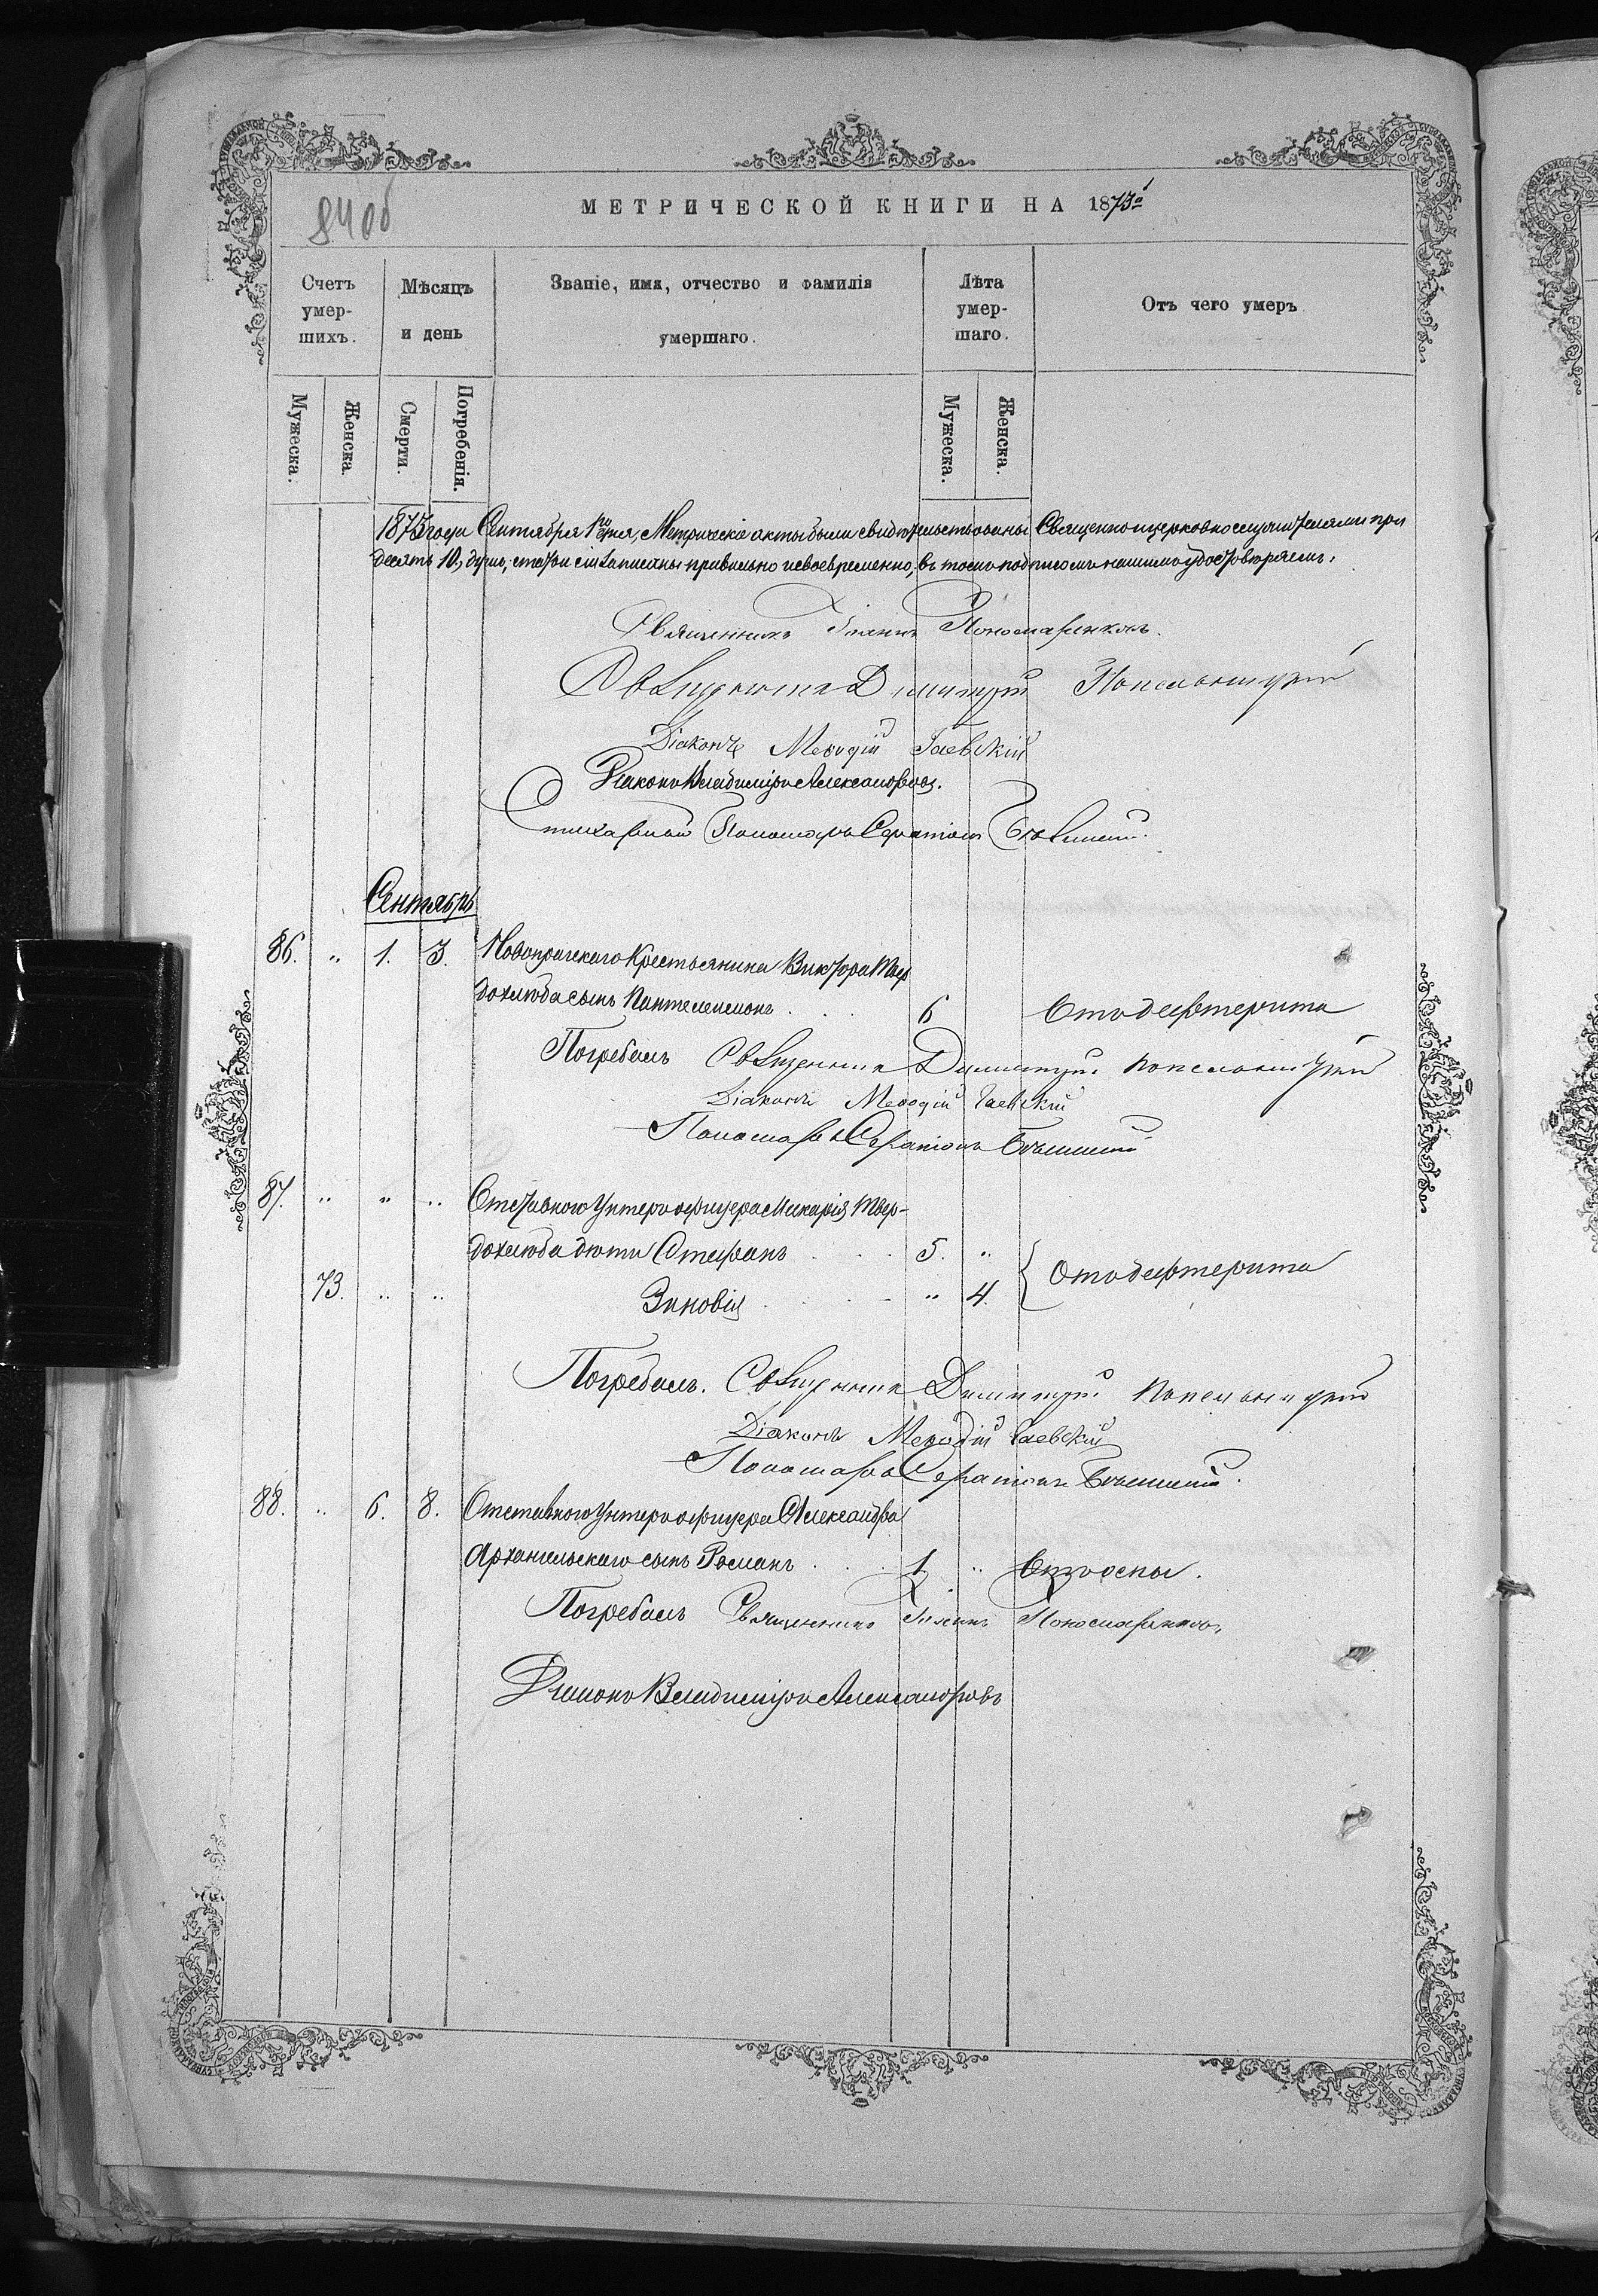 МЕТРИЧЕСКОЙ КНИГИ НА 1873й
84об
Счетъ умер-шихъ.
Мѣсяцъ и день
Званіе, имя, отчество и фамилія умершаго.
Лѣта умер-шаго.
Отъ чего умеръ
Мужеска.
Женска.
Смерти.
Погребенія.
Мужеска.
Женска.
1873 года Сентября 1го дня, Метрическіе акты были свидѣтельствованы Священноцерковнослужителями при
десять 10, душъ, статьи сіи записаны правильно и своевременно, въ томъ подписомъ нашимъ удостовѣряемъ.
Священникъ Іоаннъ Пономаренковъ.
Священникъ Димитрій Попельницкій
Діаконъ Меѳодій Гаевскій
Діаконъ Владиміръ Александровъ.
Стихарный Пономарь Серапіонъ
Сентябрь
86. „ 1. 3. Новопражскаго Крестьянина Виктора Твер
дохлѣба сынъ Пантелеимонъ . . . 6 Отъ дефтерита
Погребалъ Священникъ Димитрій Попельницкій
Діаконъ Меѳодій Гаевскій
Пономарь Серапіонъ
87. „ „ „ Отставного Унтеръ офицера Макарія Твер-
дохлѣба дѣти Стефанъ . . . 5. „
Отъ дефтерита
73. „ „ Зиновія . . . „ 4.
Погребалъ. Священникъ Димитрій Попельницкій
Діаконъ Меѳодій Гаевскій
Пономарь Серапіонъ
88. „ 6. 8. Отставного Унтеръ офицера Александра
Архангельскаго сынъ Романъ . . . 1 „ Отъ оспы.
Погребалъ Священникъ Іоаннъ Пономаренковъ
Діаконъ Владиміръ Александровъ